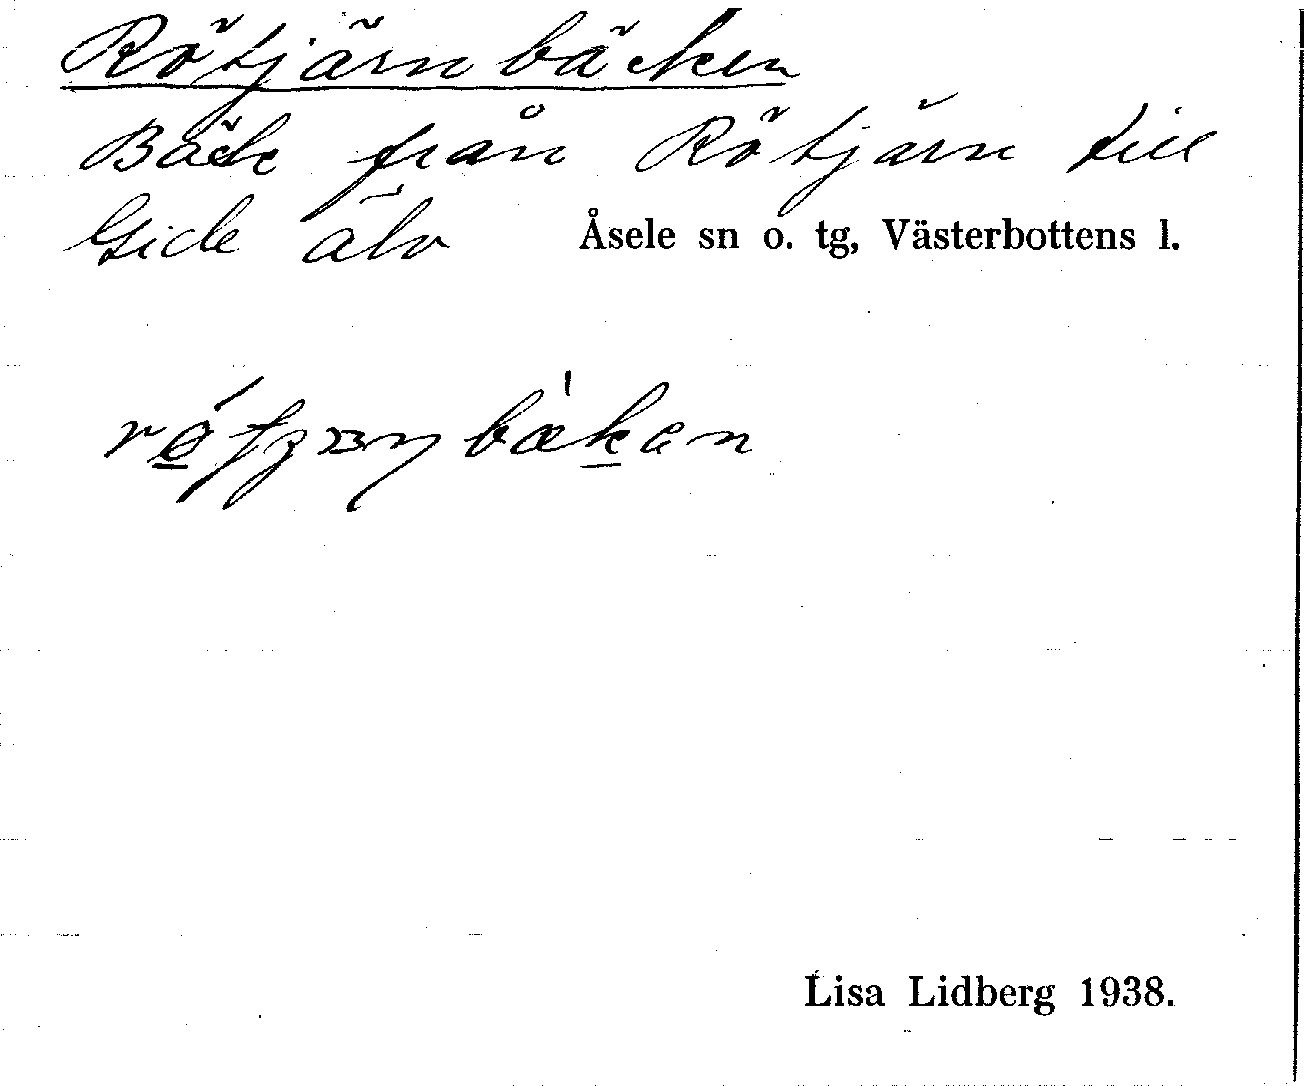 Rötjärnbäcken
Bäck från Rötjärn till
Gide älv Åsele sn o. tg, Västerbottens l.
Lisa Lidberg 1938.